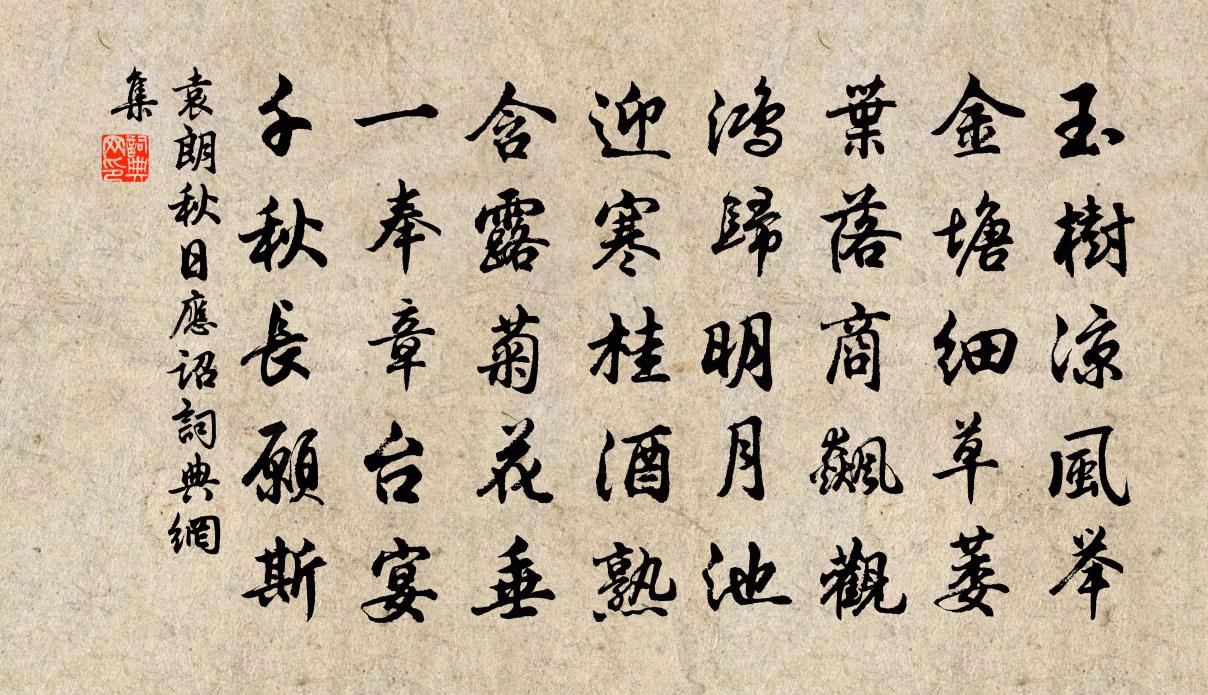 玉樹涼風举
金塘細草萎
葉落商飆觀
鴻歸明月池
迎寒桂酒熟
含露菊花垂
一奉章台宴
千秋長願斯
袁朗秋日應诏詞典網
集
詞典网印